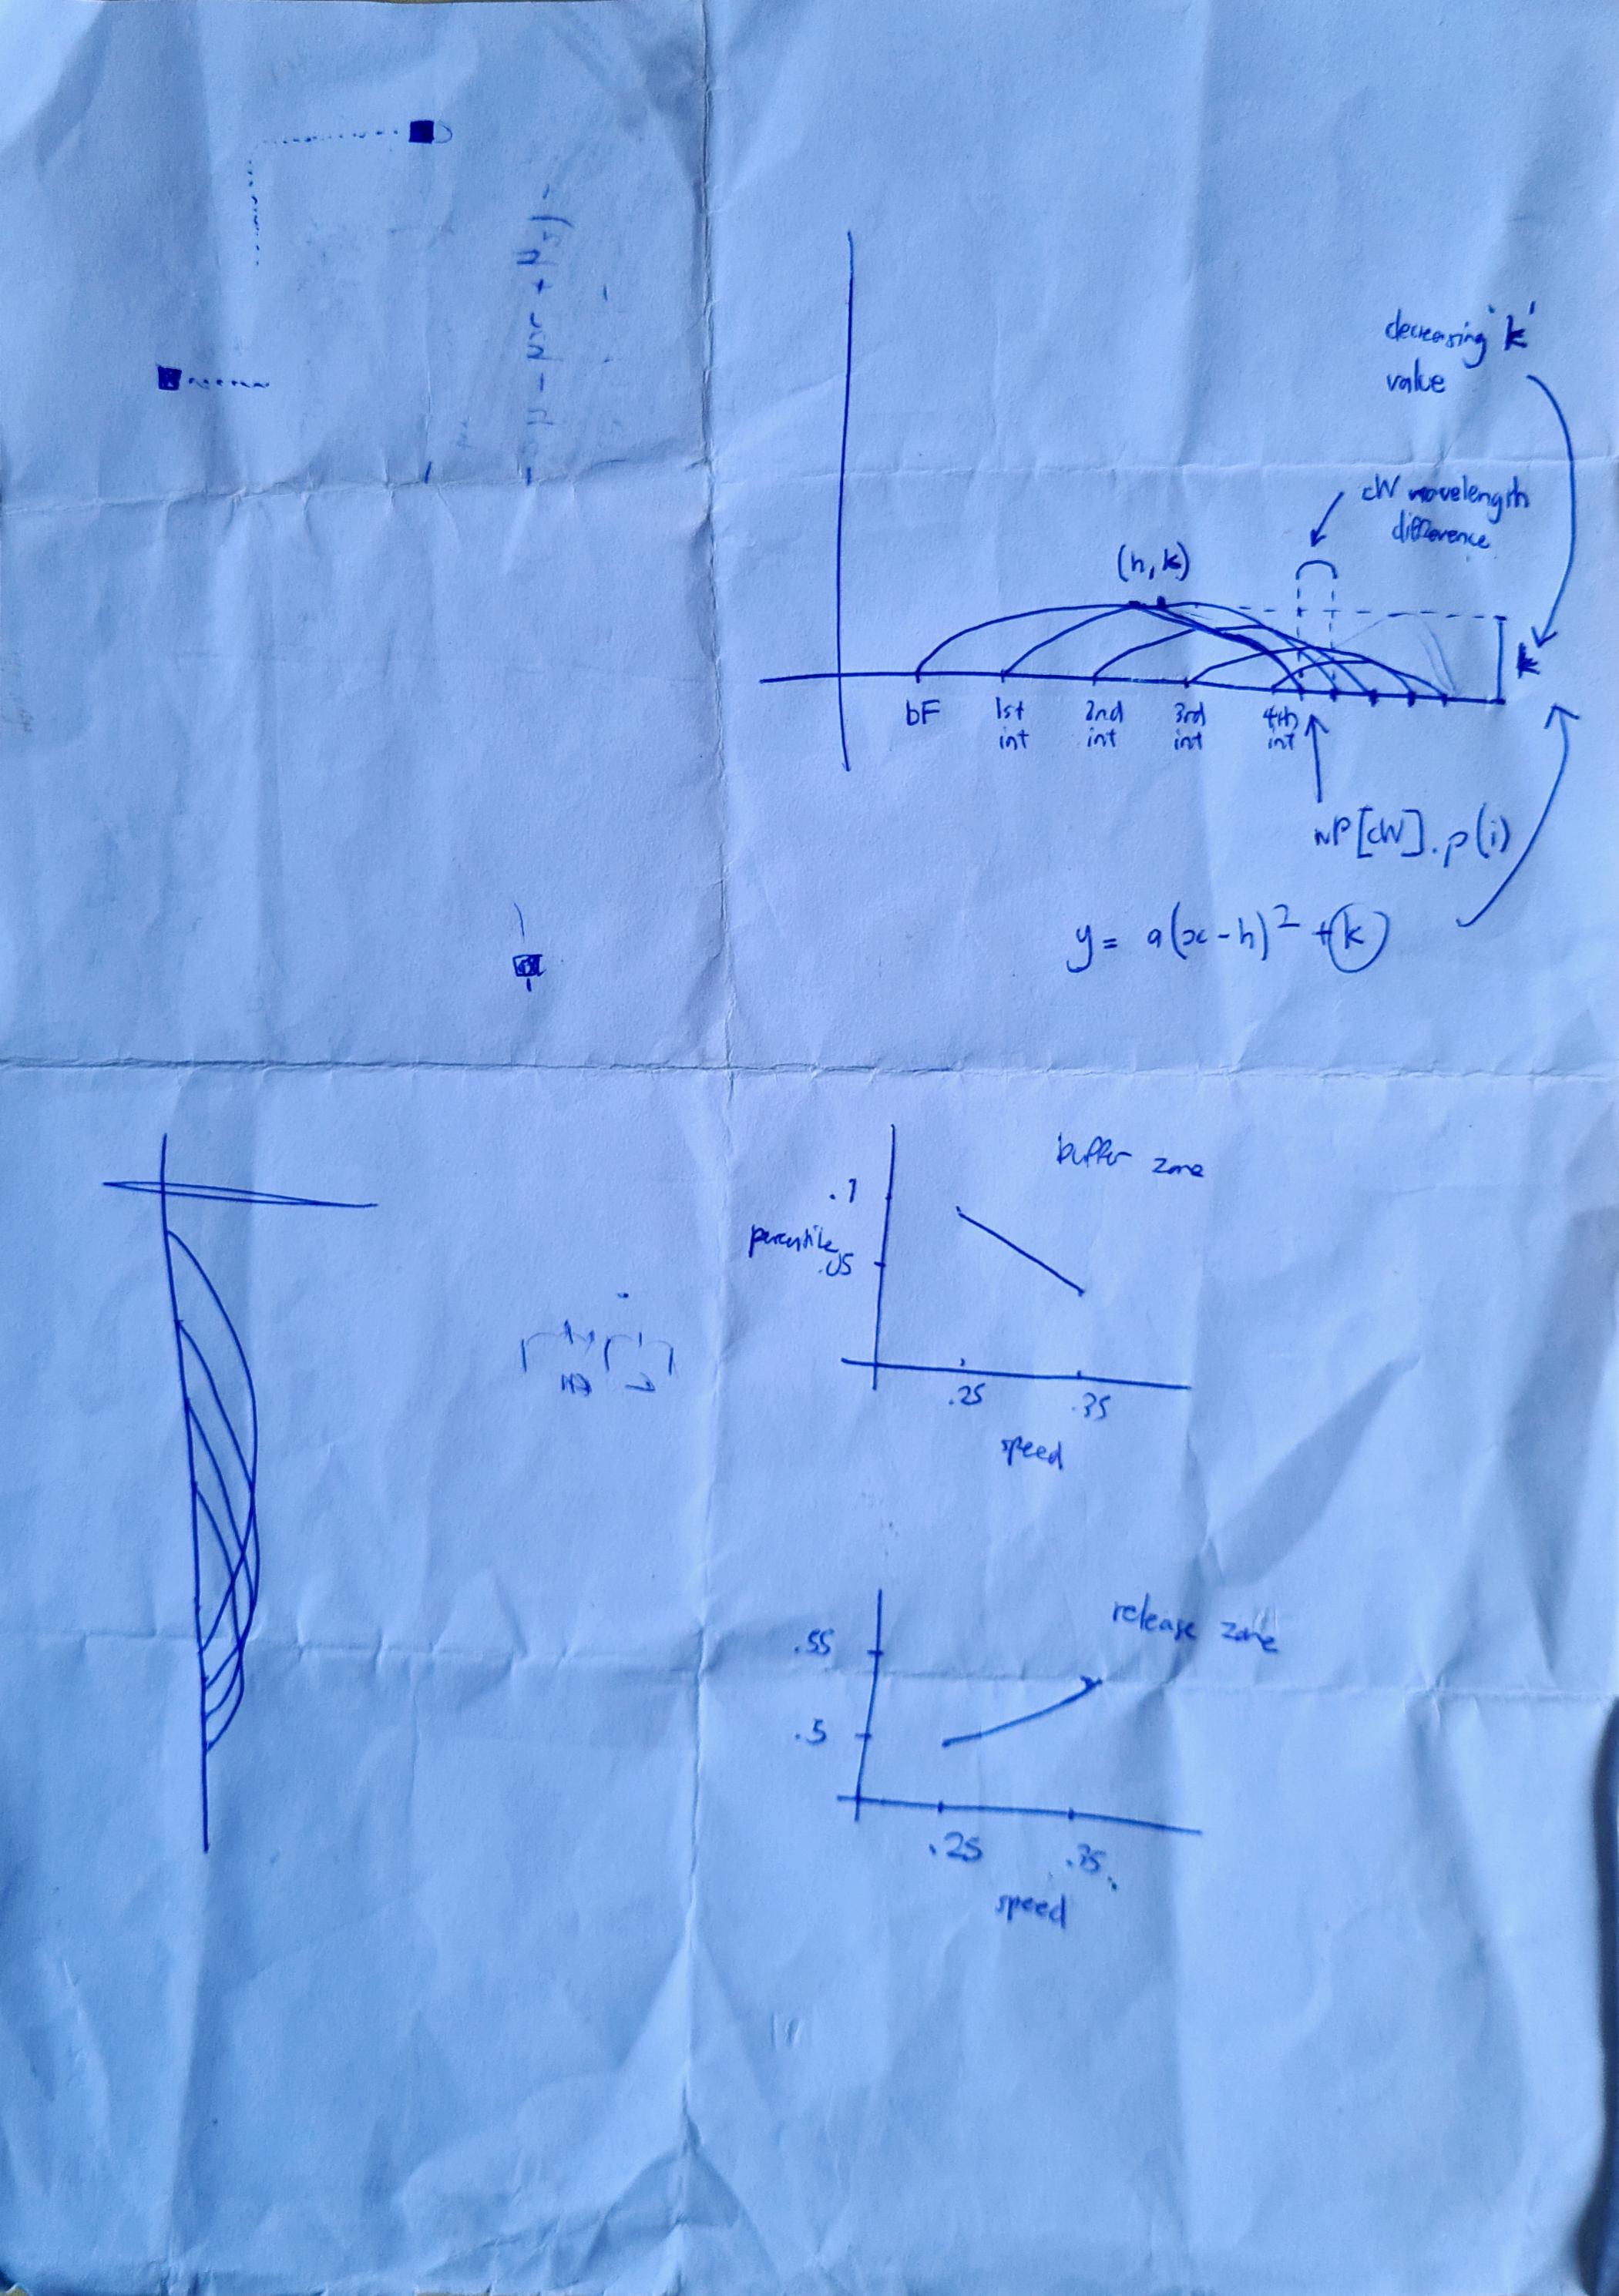 decreasing 'k'
value
cW wavelength
difference
(h, k)
k
bF
1st
int
2nd
int
3rd
int
4th
int
nP[cW].p(i)
y = a(x-h)² + k
buffer zone
.1
percentile
.05
.25
.35
speed
release zone
.55
.5
.25
.35
speed